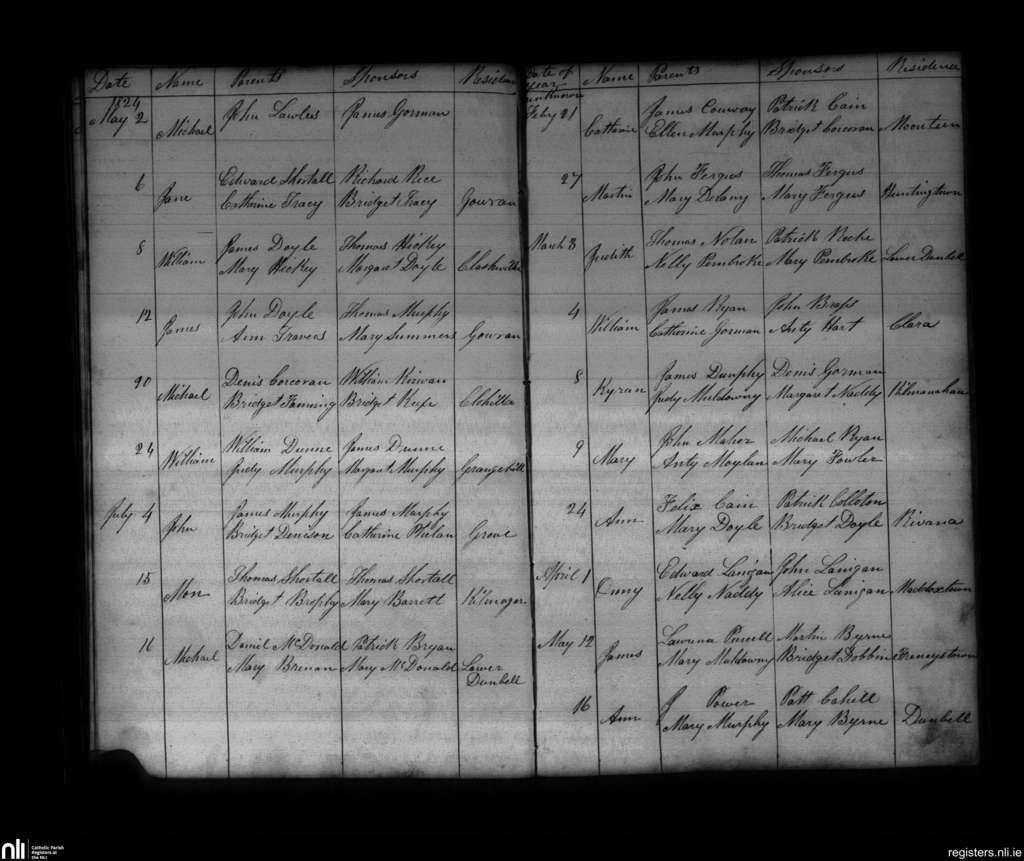 Date Name Parents Sponsors
1824
May 2 Michael John Lawless James Gorman
6 Jane Edward Shortall Richard Rice
Cathrine Tracy Bridget Tracy Gowran
8 William James Doyle Thomas Hickey
Mary Hickey Margaret Doyle
12 James John Doyle Thomas Murphy
Ann Travers Mary Summers Gowran
20 Michael Denis Corcoran William Kirwan
Bridget Fanning Bridget
24 William William Dunne James Dunne
Judy Murphy Margaret Murphy
July 4 John James Murphy James Murphy
Bridget Denison Catherine Phelan Grove
15 Thomas Shortall Thomas Shortall
Bridget Brophy Mary Barrett
16 Michael Daniel McDonald Patrick Bryan
Mary Brenan Mary McDonald Lower
Dunbell
Date of Name Parents Sponsors Residence
year
unknown
Feby 21 James Conway Patrick Cain
Catherine Ellen Murphy Bridget Corcoran
27 Martin John Fergus Thomas Fergus
Mary Delany Mary Fergus Huntingtown
March 3 Judith Thomas Nolan Patrick Roche
Nelly Pembroke Mary Pembroke Lower Dunbell
4 William James Ryan John
Catherine Gorman Anty Hart Clara
8 Kyran James Dunphy Denis Gorman
Judy Muldowny Margaret Naddy
9 Mary John Maher Michael Ryan
Anty Moylan Mary Fowler
24 Ann Felix Cain Patrick
Mary Doyle Bridget Doyle
April 1 Edward Lanigan John Lanigan
Nelly Naddy Alice Lanigan Maddoxtown
May 12 James Martin Byrne
Mary Muldowny Bridget Freneystown
16 Ann J Power Patt Cahill
Mary Murphy Mary Byrne Dunbell
nli Catholic Parish
Registers at
the NLI
registers.nli.ie